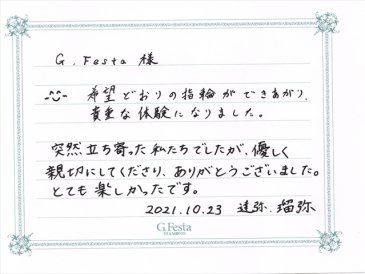 G.Festa 様
希望どおりの指輪ができあがり、
貴重な体験になりました。
突然立ち寄った私たちでしたが、優しく
親切にしてくださり、ありがとうございました。
とても楽しかったです。
2021.10.23 達弥、瑠弥
G.Festa
DIAMOND